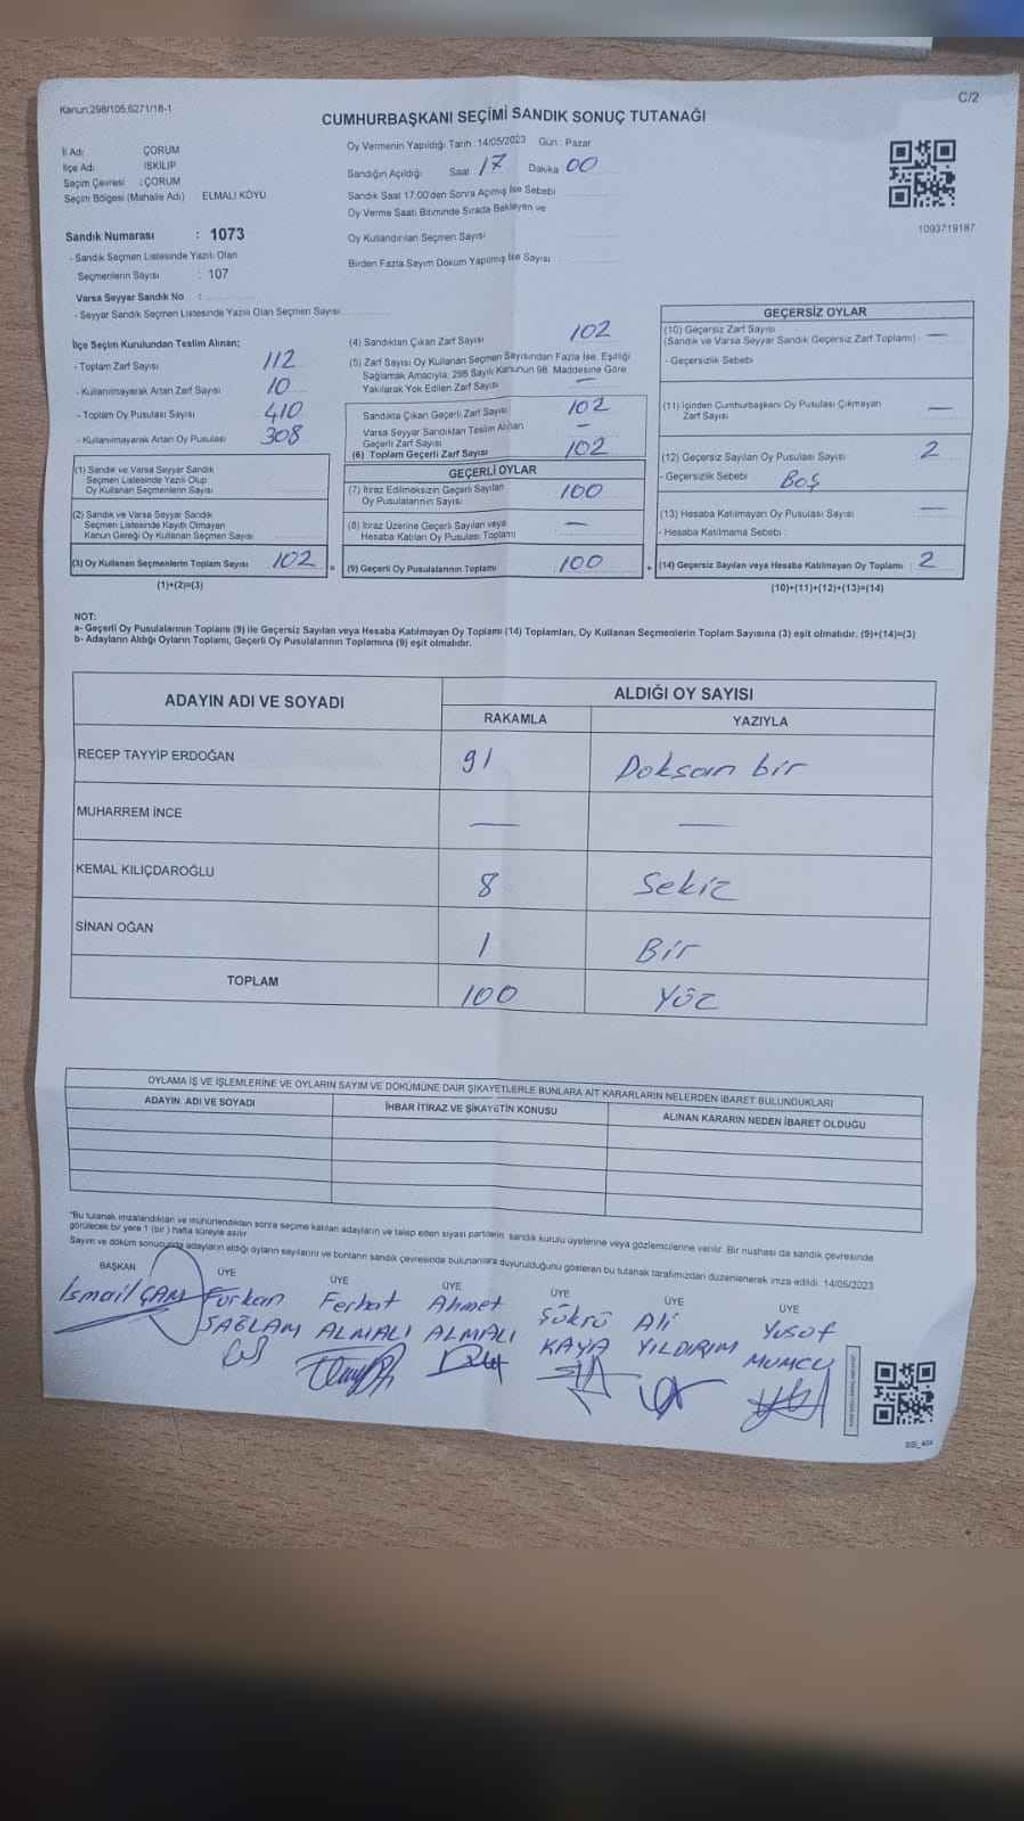 Kanun:298/105,6271/18-1
C/2
CUMHURBAŞKANI SEÇİMİ SANDIK SONUÇ TUTANAĞI
İl Adı ÇORUM
İlçe Adı İSKİLİP
Seçim Çevresi : ÇORUM
Seçim Bölgesi (Mahalle Adı) ELMALI KÖYÜ
Sandık Numarası : 1073
- Sandık Seçmen Listesinde Yazılı Olan
Seçmenlerin Sayısı : 107
Varsa Seyyar Sandık No :
- Seyyar Sandık Seçmen Listesinde Yazılı Olan Seçmen Sayısı
Oy Vermenin Yapıldığı Tarih : 14/05/2023 Gün : Pazar
Sandığın Açıldığı Saat 17 Dakika 00
Sandık Saat 17:00'den Sonra Açılmış İse Sebebi
Oy Verme Saati Bitiminde Sırada Bekleyen ve
Oy Kullandırılan Seçmen Sayısı
Birden Fazla Sayım Döküm Yapılmış İse Sayısı
1093719187
İlçe Seçim Kurulundan Teslim Alınan;
- Toplam Zarf Sayısı 112
- Kullanılmayarak Artan Zarf Sayısı 10
- Toplam Oy Pusulası Sayısı 410
- Kullanılmayarak Artan Oy Pusulası 308
(1) Sandık ve Varsa Seyyar Sandık
Seçmen Listesinde Yazılı Olup
Oy Kullanan Seçmenlerin Sayısı
(2) Sandık ve Varsa Seyyar Sandık
Seçmen Listesinde Kayıtlı Olmayan
Kanun Gereği Oy Kullanan Seçmen Sayısı
(3) Oy Kullanan Seçmenlerin Toplam Sayısı 102 =
(1)+(2)=(3)
(4) Sandıktan Çıkan Zarf Sayısı 102
(5) Zarf Sayısı Oy Kullanan Seçmen Sayısından Fazla İse, Eşitliği
Sağlamak Amacıyla, 298 Sayılı Kanunun 98. Maddesine Göre
Yakılarak Yok Edilen Zarf Sayısı —
Sandıkta Çıkan Geçerli Zarf Sayısı 102
Varsa Seyyar Sandıktan Teslim Alınan
Geçerli Zarf Sayısı —
(6) Toplam Geçerli Zarf Sayısı 102
GEÇERLİ OYLAR
(7) İtiraz Edilmeksizin Geçerli Sayılan
Oy Pusulalarının Sayısı 100
(8) İtiraz Üzerine Geçerli Sayılan veya
Hesaba Katılan Oy Pusulası Toplamı —
(9) Geçerli Oy Pusulalarının Toplamı 100 +
GEÇERSİZ OYLAR
(10) Geçersiz Zarf Sayısı
(Sandık ve Varsa Seyyar Sandık Geçersiz Zarf Toplamı) —
- Geçersizlik Sebebi
(11) İçinden Cumhurbaşkanı Oy Pusulası Çıkmayan
Zarf Sayısı —
(12) Geçersiz Sayılan Oy Pusulası Sayısı 2
- Geçersizlik Sebebi Boş
(13) Hesaba Katılmayan Oy Pusulası Sayısı —
- Hesaba Katılmama Sebebi :
(14) Geçersiz Sayılan veya Hesaba Katılmayan Oy Toplamı 2
(10)+(11)+(12)+(13)=(14)
NOT:
a- Geçerli Oy Pusulalarının Toplamı (9) ile Geçersiz Sayılan veya Hesaba Katılmayan Oy Toplamı (14) Toplamları, Oy Kullanan Seçmenlerin Toplam Sayısına (3) eşit olmalıdır. (9)+(14)=(3)
b- Adayların Aldığı Oyların Toplamı, Geçerli Oy Pusulalarının Toplamına (9) eşit olmalıdır.
ADAYIN ADI VE SOYADI ALDIĞI OY SAYISI
RAKAMLA YAZIYLA
RECEP TAYYİP ERDOĞAN 91 Doksan bir
MUHARREM İNCE — —
KEMAL KILIÇDAROĞLU 8 Sekiz
SİNAN OĞAN 1 Bir
TOPLAM 100 Yüz
OYLAMA İŞ VE İŞLEMLERİNE VE OYLARIN SAYIM VE DÖKÜMÜNE DAİR ŞİKAYETLERLE BUNLARA AİT KARARLARIN NELERDEN İBARET BULUNDUKLARI
ADAYIN ADI VE SOYADI İHBAR İTİRAZ VE ŞİKAYETİN KONUSU ALINAN KARARIN NEDEN İBARET OLDUĞU
"Bu tutanak imzalandıktan ve mühürlendikten sonra seçime katılan adayların ve talep eden siyasi partilerin, sandık kurulu üyelerine veya gözlemcilerine verilir. Bir nüshası da sandık çevresinde
görülecek bir yere 1 (bir) hafta süreyle asılır.
Sayım ve döküm sonucunda adayların aldığı oyların sayılarını ve bunların sandık çevresinde bulunanlara duyurulduğunu gösteren bu tutanak tarafımızdan düzenlenerek imza edildi. 14/05/2023
BAŞKAN ÜYE ÜYE ÜYE ÜYE ÜYE ÜYE
İsmail ÇAM Furkan Ferhat Ahmet Şükrü Ali Yusuf
SAĞLAM ALMALI ALMALI KAYA YILDIRIM MUMCU